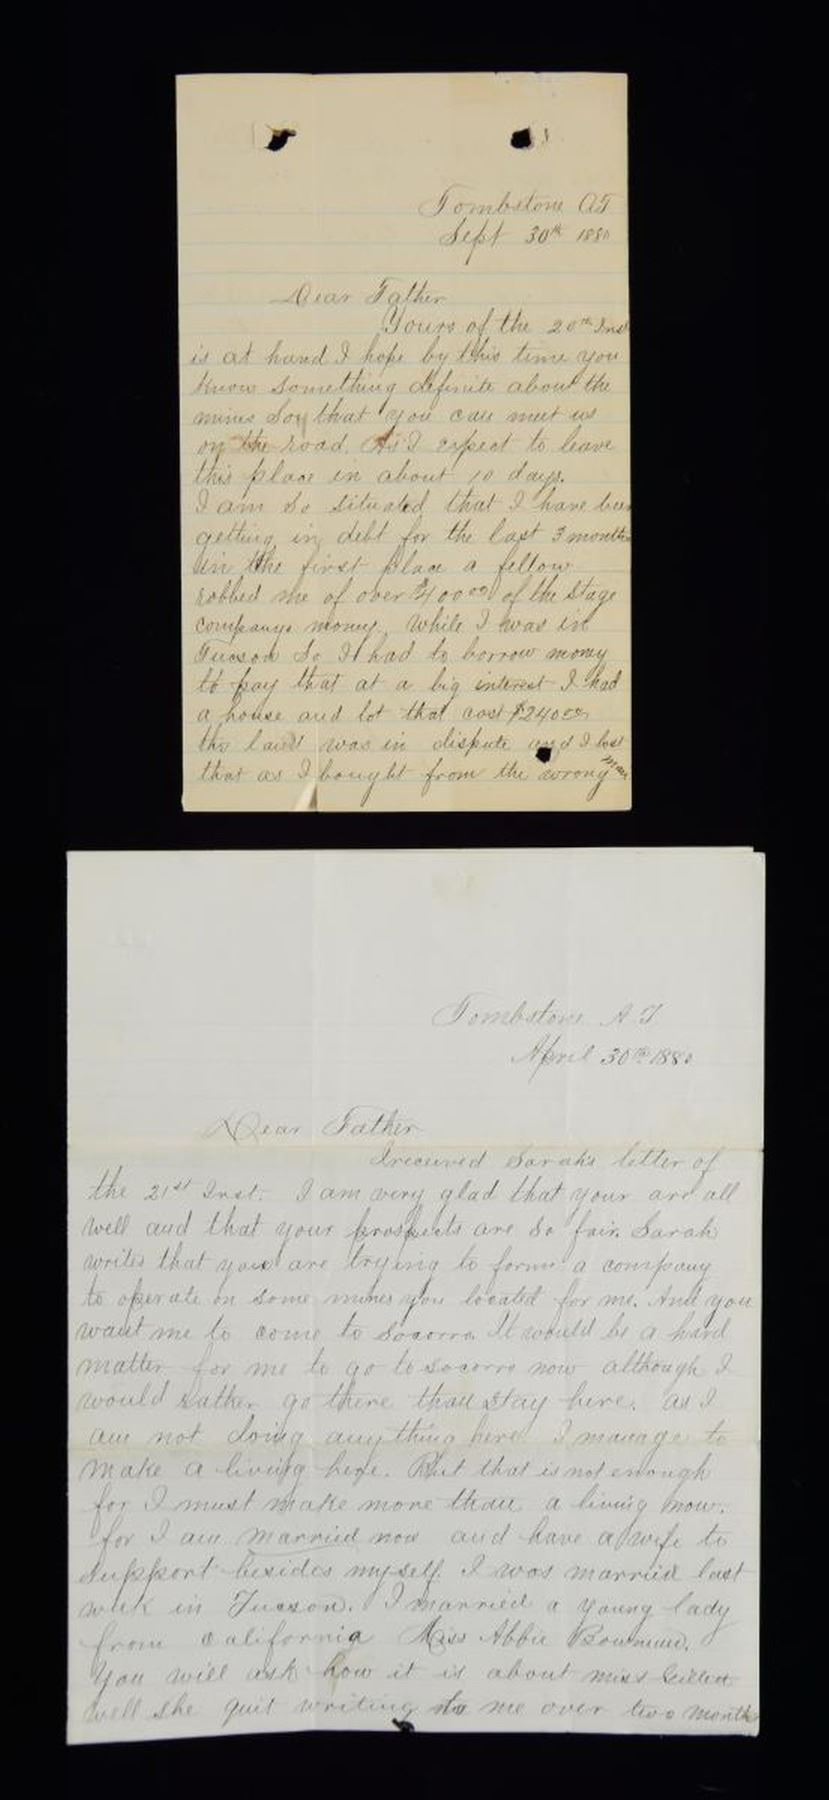 Tombstone AT
Sept 30th 1880
Dear Father
Yours of the 20th Inst
is at hand I hope by this time you
know something definite about the
mines Soy that you can meet us
on the road. As I expect to leave
this place in about 10 days.
I am so situated that I have been
getting in debt for the last 3 months
in the first place a fellow
robbed me of over $400 00 of the Stage
companys money. While I was in
Tucson So I had to borrow money
to pay that at a big interest I had
a house and lot that cost $240 00
the land was in dispute and I lost
that as I bought from the wrong man
Tombstone A T
April 30th 1880
Dear Father
I received Sarah's letter of
the 21st Inst. I am very glad that your are all
well and that your prospects are so fair. Sarah
writes that you are trying to form a company
to operate on some mines you located for me. And you
want me to come to Socorro. It would be a hard
matter for me to go to Socorro now although I
would rather go there than stay here. as I
am not doing any thing here I manage to
make a living here. But that is not enough
for I must make more than a living now.
for I am married now and have a wife to
support besides myself. I was married last
week in Tucson. I married a young lady
from California Miss Abbie
You will ask how it is about miss
well she quit writing to me over two months